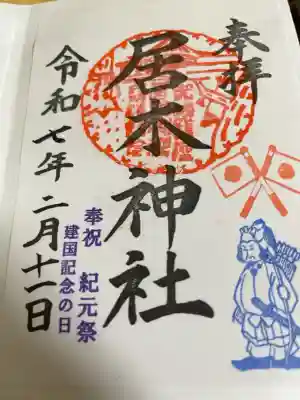 奉拝
居木神社
奉祝 紀元祭
建国記念の日
令和七年二月十一日